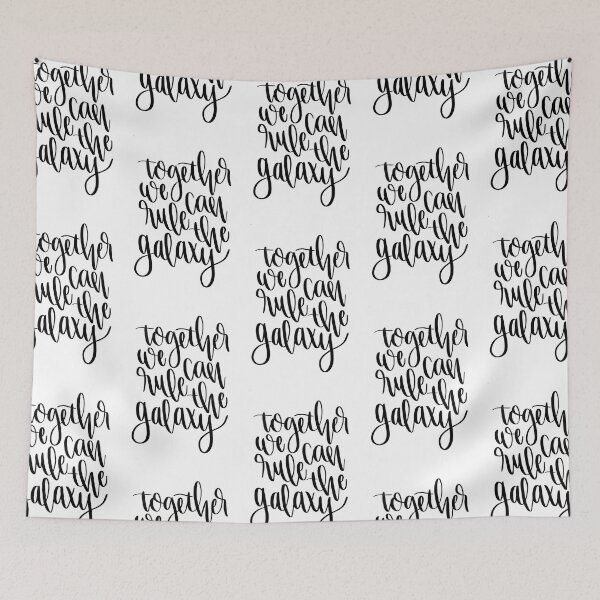 together
we can
rule the
galaxy
together
we can
rule the
galaxy
together
we can
rule the
galaxy
galaxy
together
we can
rule the
galaxy
together
we can
rule the
galaxy
together
together
we can
rule the
galaxy
together
we can
rule the
galaxy
together
we can
rule the
galaxy
galaxy
together
we can
rule the
galaxy
together
we can
rule the
galaxy
together
together
we can
rule the
galaxy
together
we can
rule the
galaxy
together
we can
rule the
galaxy